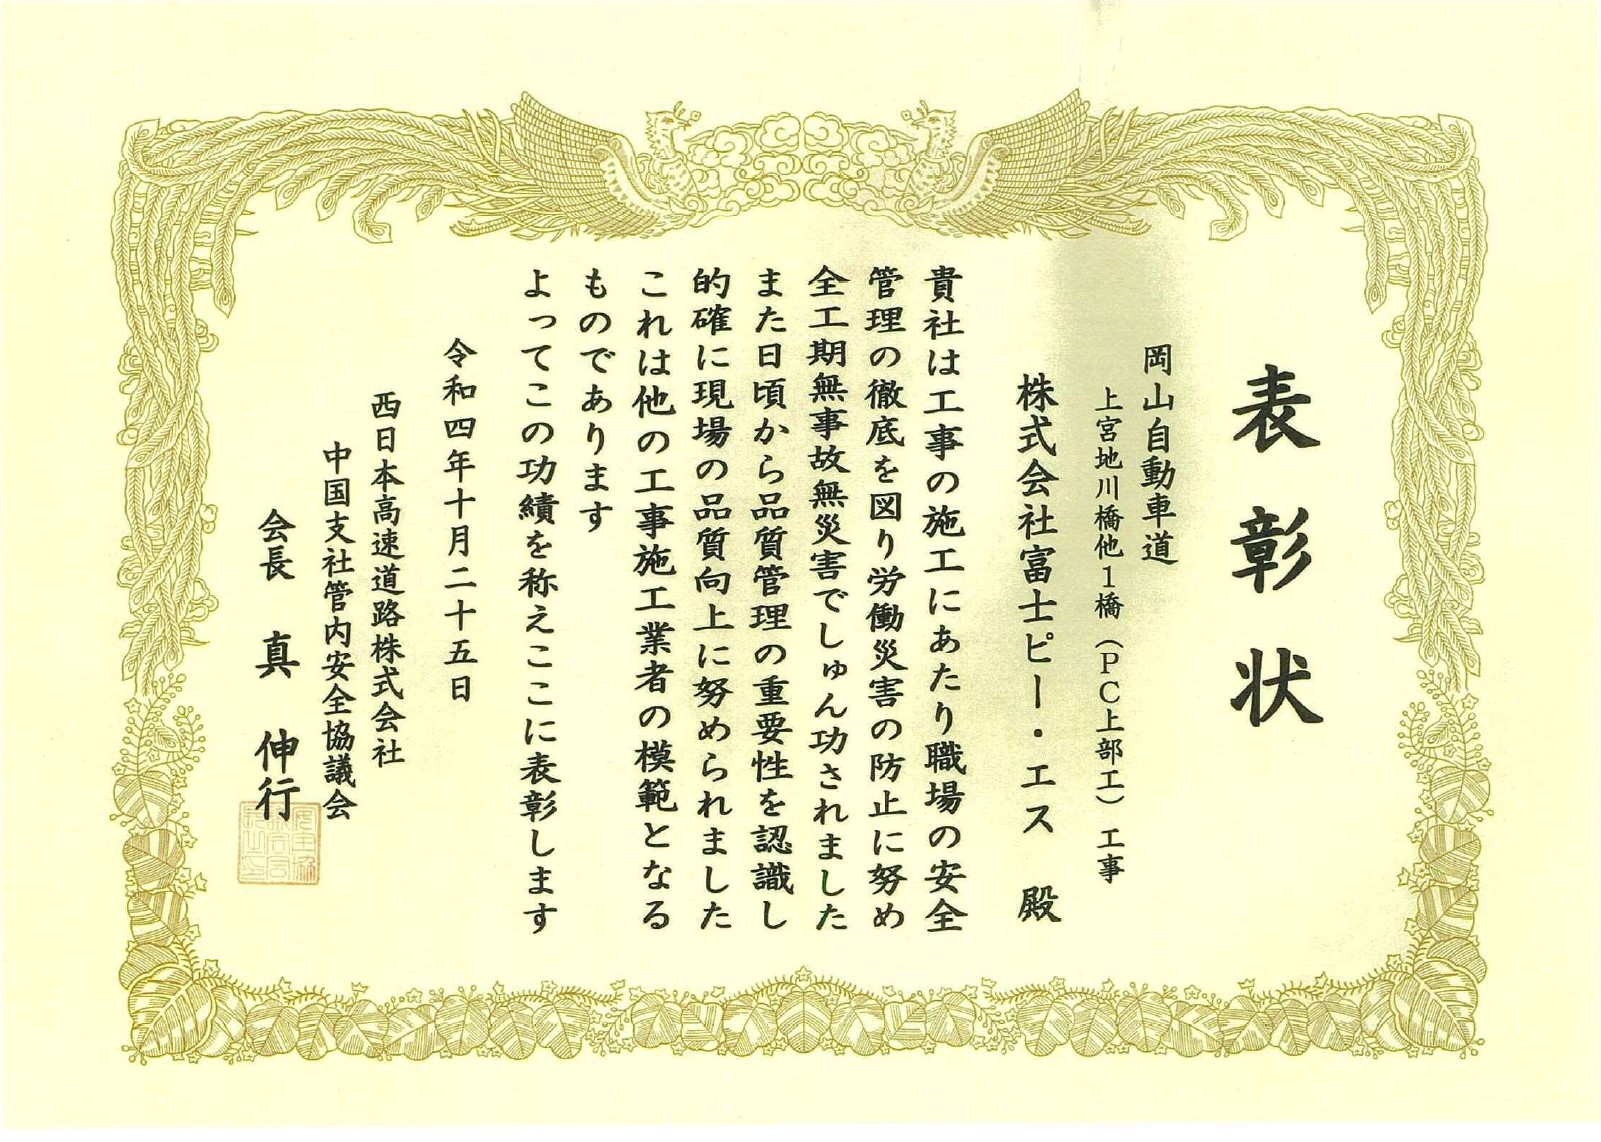 表彰状
岡山自動車道
上宮地川橋他1橋（PC上部工）工事
株式会社富士ピー・エス 殿
貴社は工事の施工にあたり職場の安全
管理の徹底を図り労働災害の防止に努め
全工期無事故無災害でしゅん功されました
また日頃から品質管理の重要性を認識し
的確に現場の品質向上に努められました
これは他の工事施工業者の模範となる
ものであります
よってこの功績を称えここに表彰します
令和四年十月二十五日
西日本高速道路株式会社
中国支社管内安全協議会
会長 真 伸行